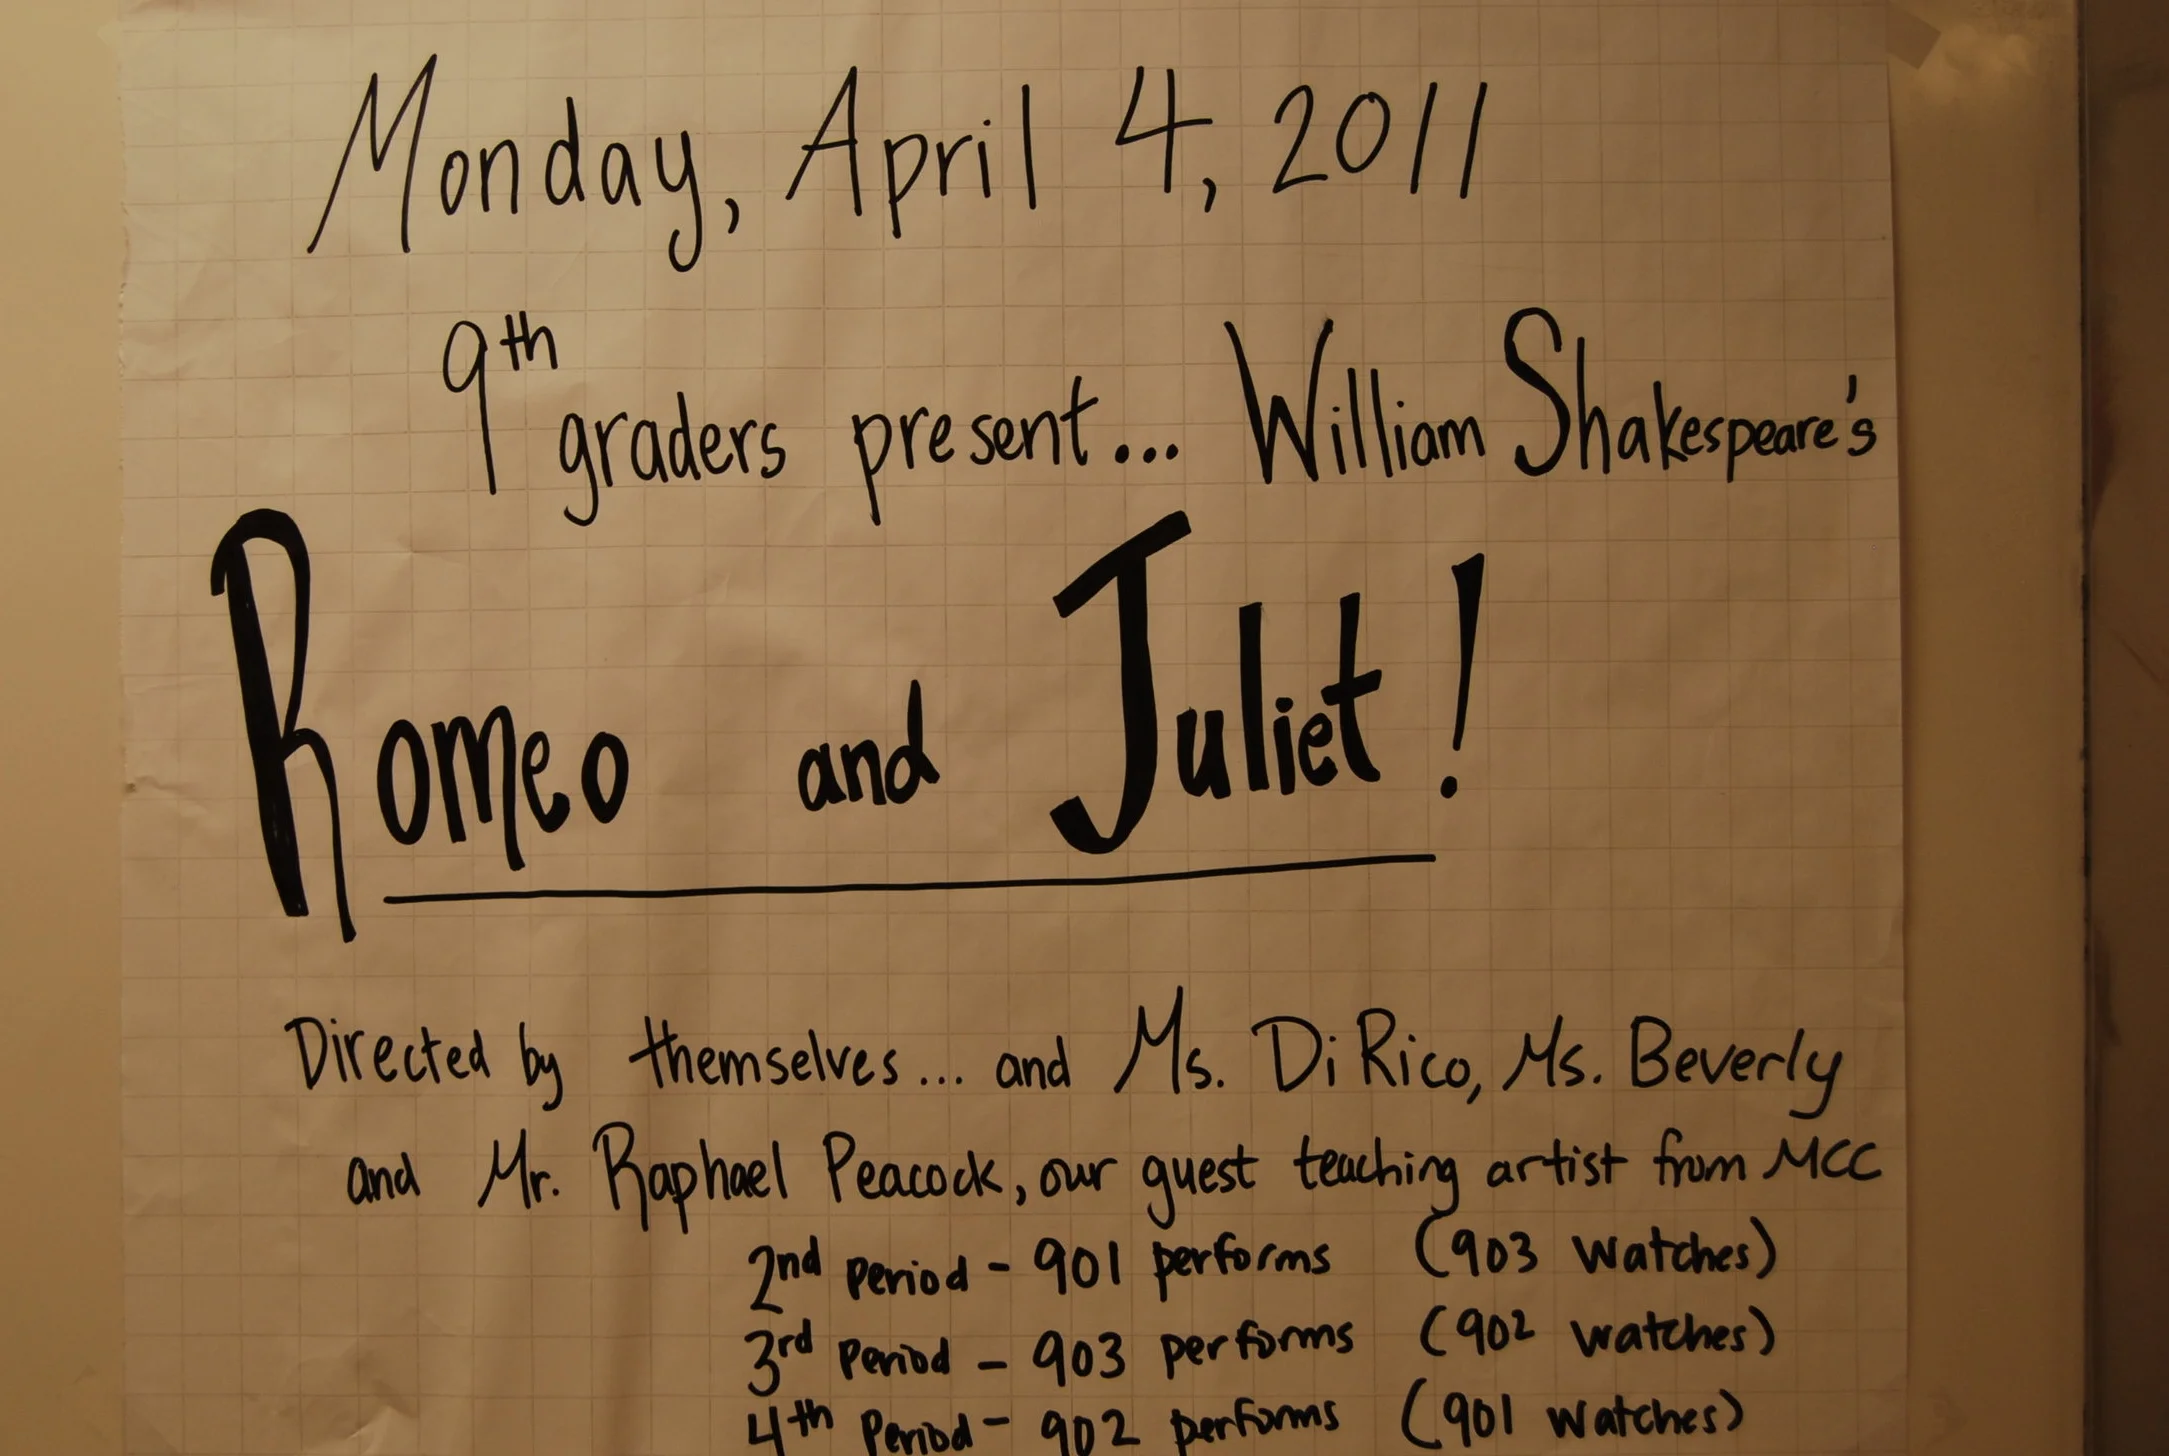 Monday, April 4, 2011
9th graders present... William Shakespeare's
Romeo and Juliet!
Directed by themselves... and Ms. DiRico, Ms. Beverly
and Mr. Raphael Peacock, our guest teaching artist from MCC
2nd Period - 901 performs (903 watches)
3rd Period - 903 performs (902 watches)
4th Period - 902 performs (901 watches)